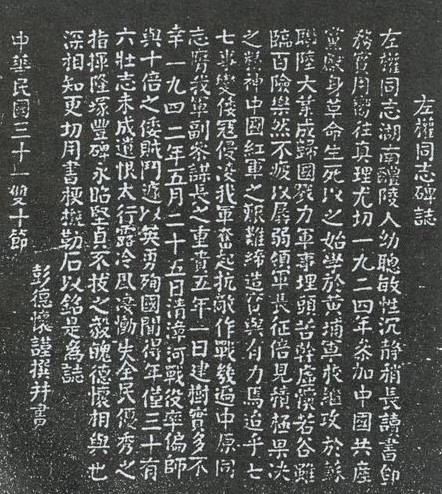 左權同志碑誌
左權同志湖南醴陵人幼聰敏性沉静稍長讀書即
務實用嚮往真理尤切一九二四年参加中國共產
黨獻身革命生死以之始學於黃埔軍校繼攻於蘇
聯陸大業成歸國戮力軍事埋頭苦幹虛懷若谷雖
臨百險樂然不疲以孱弱領軍長征倍見積極果决
之精神中國紅軍之艱難締造實與有力焉迨乎七
七事變倭寇侵凌我軍奮起抗敵作戰幾遍中原同
志膺我軍副參謀長之重責五年一日建樹實多不
幸一九四二年五月二十五日清漳河戰役率偏師
與十倍之倭賊鬥遽以英勇殉國聞得年僅三十有
六壯志未成遺恨太行露冷風凄慟失全民優秀之
指揮隆塚豐碑永昭堅貞不拔之毅魄德懷相與也
深相知更切用書梗概勒石以銘是為誌
彭德懷謹撰并書
中華民國三十一雙十節